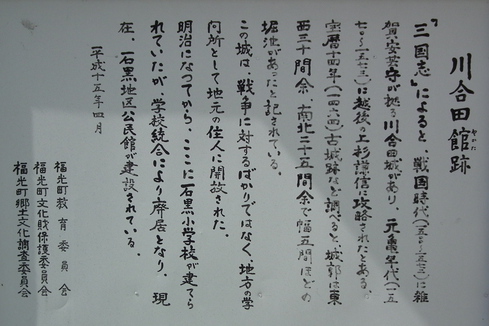 川合田館跡
やかた
『三国志』によると、戦国時代(一五〇〇~一五七三)に雑
賀安芸守が拠る川合田城があり、元亀年代(一五
七〇~一五七三)に越後の上杉謙信に攻略されたとある。
宝暦十四年(一七六四)古城跡などを調べると、城郭は東
西三十間余、南北二十五間余で幅五間ほどの
堀池があったと記されている。
この城は、戦争に対するばかりではなく、地方の学
問所として地元の住人に開放された。
明治になってから、ここに石黒小学校が建てら
れていたが、学校統合により廃居となり、現
在、石黒地区公民館が建設されている。
平成十五年四月
福光町教育委員会
福光町文化財保護委員会
福光町郷土文化調査委員会